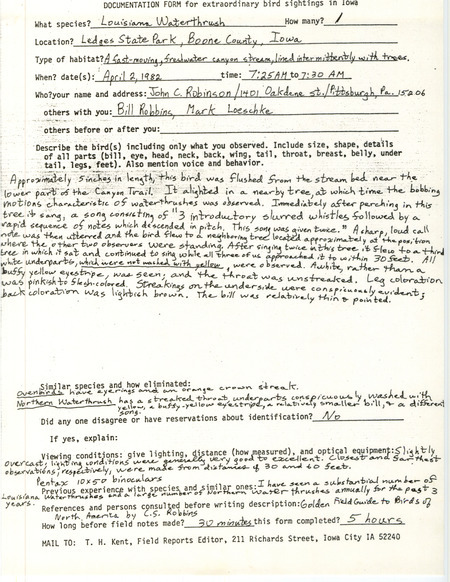 DOCUMENTATION FORM for extraordinary bird sightings in Iowa
What species? Louisiana Waterthrush How many? 1
Location? Ledges State Park, Boone County, Iowa
Type of habitat? A fast-moving, freshwater canyon stream, lined intermittently with trees.
When? date(s): April 2, 1982 time: 7:25 AM to 7:30 AM
Who? your name and address: John C. Robinson / 1401 Oakdene St. / Pittsburgh, Pa. 15206
others with you: Bill Robbins, Mark Loeschke
others before or after you:
Describe the bird(s) including only what you observed. Include size, shape, details
of all parts (bill, eye, head, neck, back, wing, tail, throat, breast, belly, under
tail, legs, feet). Also mention voice and behavior.
Approximately 5 inches in length, this bird was flushed from the stream bed near the
lower part of the Canyon Trail. It alighted in a nearby tree, at which time the bobbing
motions characteristic of waterthrushes was observed. Immediately after perching in this
tree it sang, a song consisting of "3 introductory slurred whistles followed by a
rapid sequence of notes which descended in pitch. This song was given twice." A sharp, loud call
note was then uttered and the bird flew to a neighboring tree located approximately at the position
where the other two observers were standing. After singing twice in this tree it flew to a third
tree in which it sat and continued to sing while all three of us approached it to within 30 feet. All
white underparts, which were not washed with yellow, were observed. A white, rather than a
buffy, yellow eyestripe, was seen, and the throat was unstreaked. Leg coloration
was pinkish to flesh-colored. Streakings on the underside were conspicuously evident;
back coloration was lightish brown. The bill was relatively thin & pointed.
Similar species and how eliminated:
Ovenbirds have eyerings and an orange crown streak.
Northern Waterthrush has a streaked throat, underparts conspicuously washed with
yellow, a buffy-yellow eyestripe, a relatively smaller bill, & a different
song.
Did any one disagree or have reservations about identification? No
If yes, explain:
Viewing conditions: give lighting, distance (how measured), and optical equipment: Slightly
overcast; lighting conditions were generally very good to excellent. Closest and farthest
observations, respectively, were made from distances of 30 and 60 feet.
Pentax 10x50 binoculars
Previous experience with species and similar ones: I have seen a substantial number of
Louisiana Waterthrushes and a large number of Northern Waterthrushes annually for the past 3
years.
References and persons consulted before writing description: Golden Field Guide to Birds of
North America by C.S. Robbins
How long before field notes made? 30 minutes this form completed? 5 hours
MAIL TO: T. H. Kent, Field Reports Editor, 211 Richards Street, Iowa City IA 52240